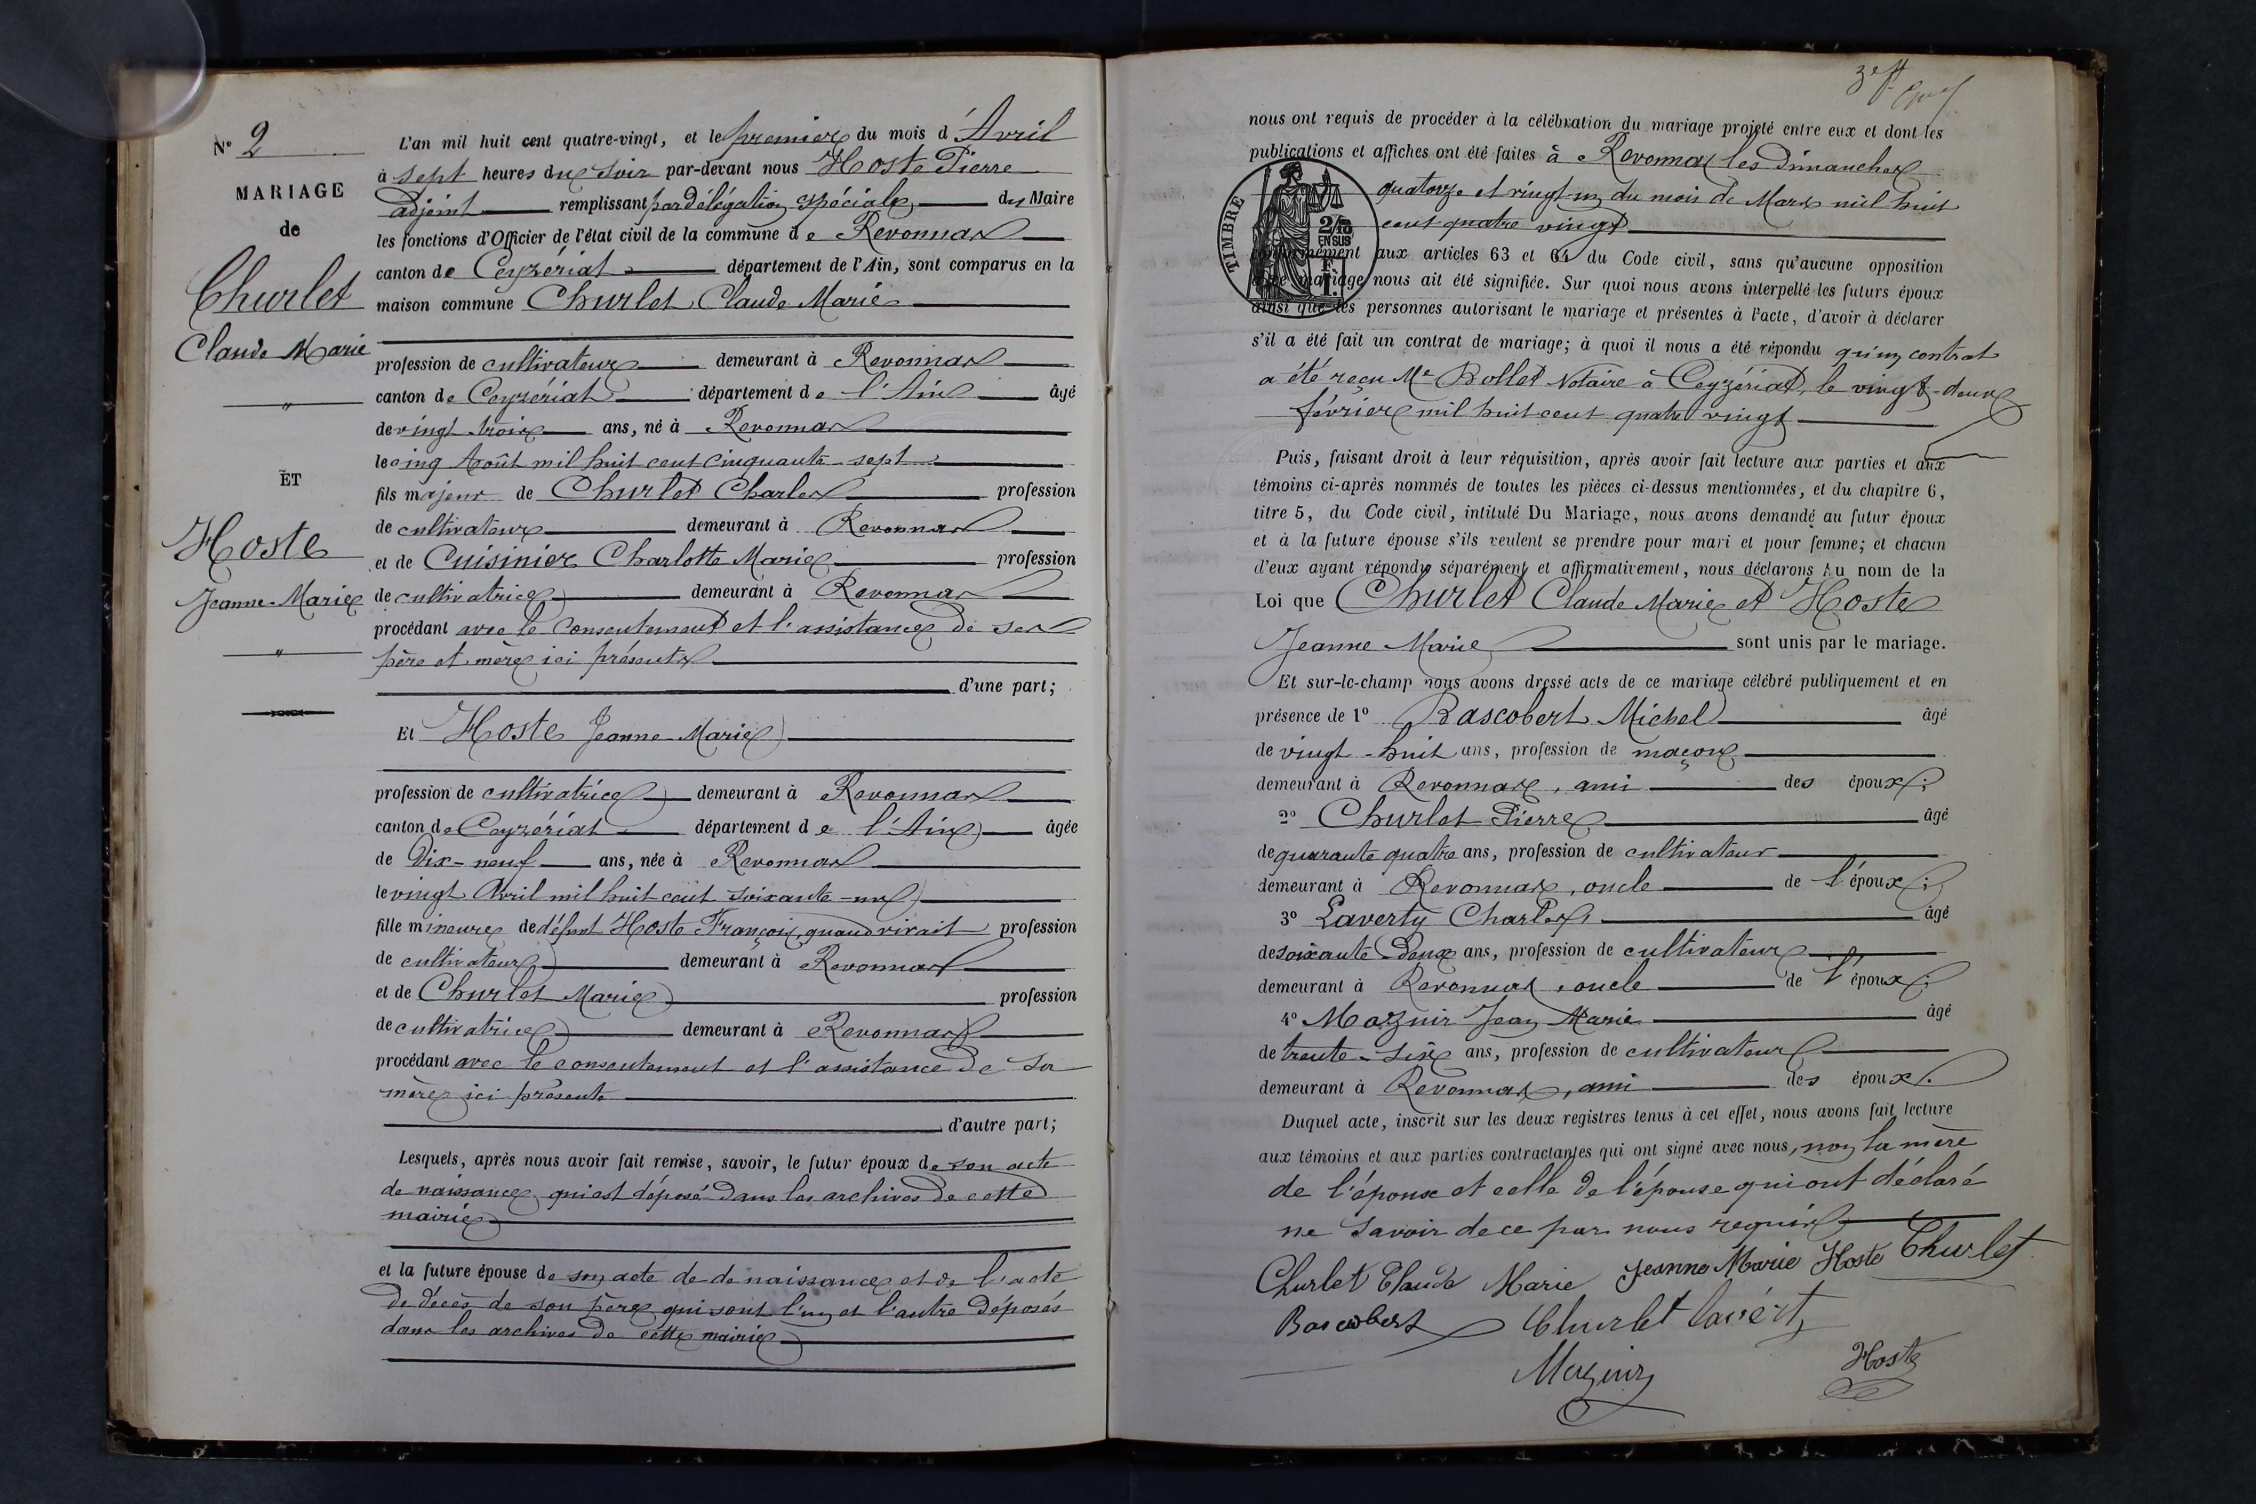 N° 2
MARIAGE
de
Churlet
Claude Marie
"
ET
Hoste
Jeanne-Marie
"
L'an mil huit cent quatre-vingt, et le premier du mois d'Avril
à sept heures du soir par-devant nous Hoste Pierre
adjoint remplissant par délégation spéciale du Maire
les fonctions d'Officier de l'état civil de la commune de Revonnas
canton de Ceyzériat département de l'Ain, sont comparus en la
maison commune Churlet Claude Marie
profession de cultivateur demeurant à Revonnas
canton de Ceyzériat département de l'Ain âgé
de vingt trois ans, né à Revonnas
le cinq Août mil huit cent cinquante-sept
fils majeur de Churlet Charles profession
de cultivateur demeurant à Revonnas
et de Cuisinier Charlotte Marie profession
de cultivatrice demeurant à Revonnas
procédant avec le consentement et l'assistance de ses
père et mère ici présents
d'une part;
Et Hoste Jeanne-Marie
profession de cultivatrice demeurant à Revonnas
canton de Ceyzériat département de l'Ain âgée
de Dix-neuf ans, née à Revonnas
le vingt Avril mil huit cent soixante-un
fille mineure de défunt Hoste François, quand vivait profession
de cultivateur demeurant à Revonnas
et de Churlet Marie profession
de cultivatrice demeurant à Revonnas
procédant avec le consentement et l'assistance de sa
mère ici présente
d'autre part;
Lesquels, après nous avoir fait remise, savoir, le futur époux de son acte
de naissance qui est déposé dans les archives de cette
mairie
et la future épouse de son acte de de naissance et de l'acte
de décès de son père qui sont l'un et l'autre déposés
dans les archives de cette mairie
3e ft
nous ont requis de procéder à la célébration du mariage projeté entre eux et dont les
publications et affiches ont été faites à Revonnas les dimanches
quatorze et vingt un du mois de Mars mil huit
cent quatre vingt
TIMBRE
2/10
EN SUS
conformément aux articles 63 et 64 du Code civil, sans qu'aucune opposition
à ce mariage nous ait été signifiée. Sur quoi nous avons interpellé les futurs époux
ainsi que les personnes autorisant le mariage et présentes à l'acte, d'avoir à déclarer
s'il a été fait un contrat de mariage; à quoi il nous a été répondu qu'un contrat
a été reçu Me Bollet Notaire à Ceyzériat, le vingt-deux
février mil huit cent quatre vingt
Puis, faisant droit à leur réquisition, après avoir fait lecture aux parties et aux
témoins ci-après nommés de toutes les pièces ci-dessus mentionnées, et du chapitre 6,
titre 5, du Code civil, intitulé Du Mariage, nous avons demandé au futur époux
et à la future épouse s'ils veulent se prendre pour mari et pour femme; et chacun
d'eux ayant répondu séparément et affirmativement, nous déclarons Au nom de la
Loi que Churlet Claude Marie et Hoste
Jeanne Marie sont unis par le mariage.
Et sur-le-champ nous avons dressé acte de ce mariage célébré publiquement et en
présence de 1° Bascobert Michel âgé
de vingt-huit ans, profession de maçon
demeurant à Revonnas, ami des époux;
2° Churlet Pierre âgé
de quarante quatre ans, profession de cultivateur
demeurant à Revonnas, oncle de l'époux;
3° Laverty Charles, âgé
de soixante Deux ans, profession de cultivateur
demeurant à Revonnas, oncle de l'époux;
4° Mazuir Jean Marie âgé
de trente-six ans, profession de cultivateur
demeurant à Revonnas, ami des époux.
Duquel acte, inscrit sur les deux registres tenus à cet effet, nous avons fait lecture
aux témoins et aux parties contractantes qui ont signé avec nous, non la mère
de l'époux et celle de l'épouse qui ont déclaré
ne savoir de ce par nous requis
Churlet Claude Marie Jeanne Marie Hoste Churlet
Bascobert Churlet Lavért
Mazuir Hoste